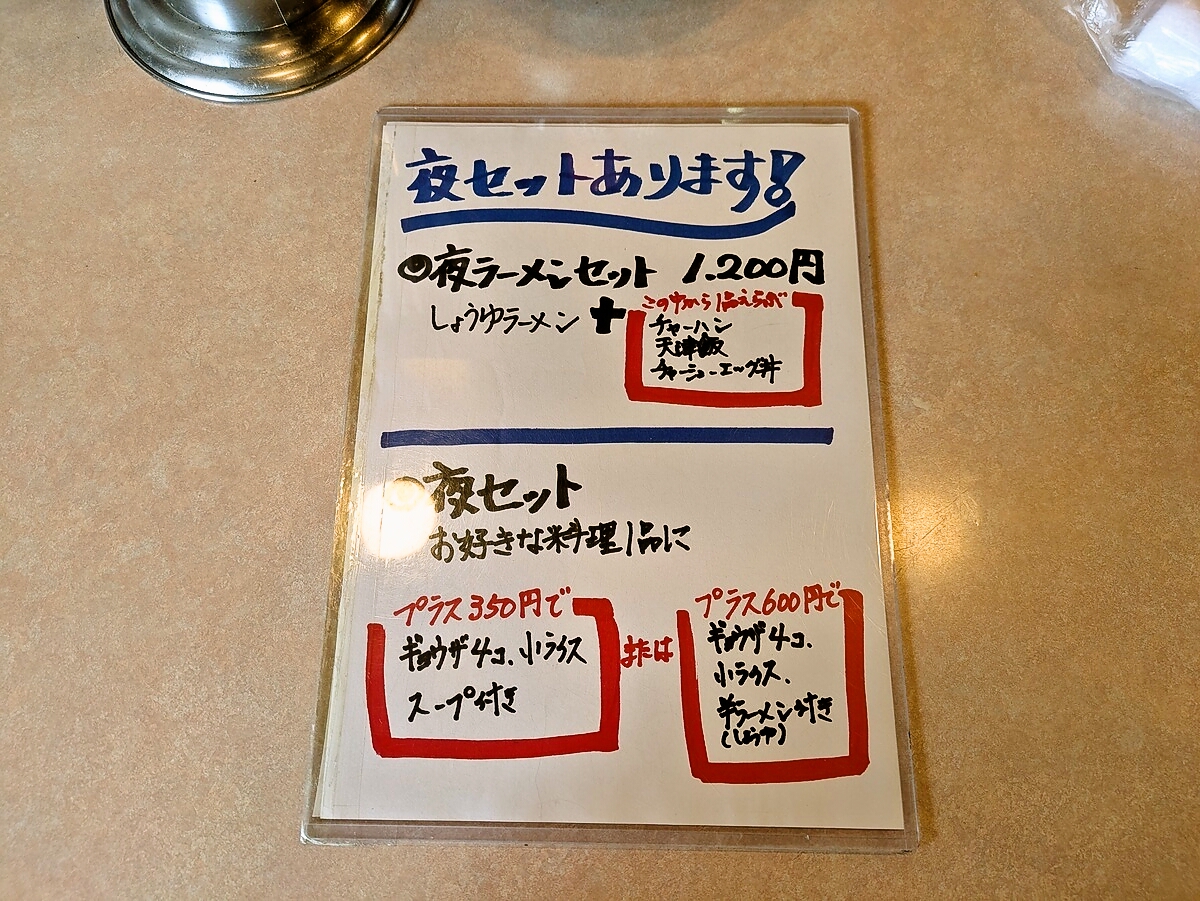 夜セットあります!
◉夜ラーメンセット 1.200円
しょうゆラーメン +
この中から1品えらぶ
チャーハン
天津飯
チャーシューエッグ丼
◉夜セット
お好きな料理1品に
プラス350円で
ギョウザ4コ、小ライス
スープ付き
または
プラス600円で
ギョウザ4コ、
小ライス、
半ラーメン付き
(しょうゆ)